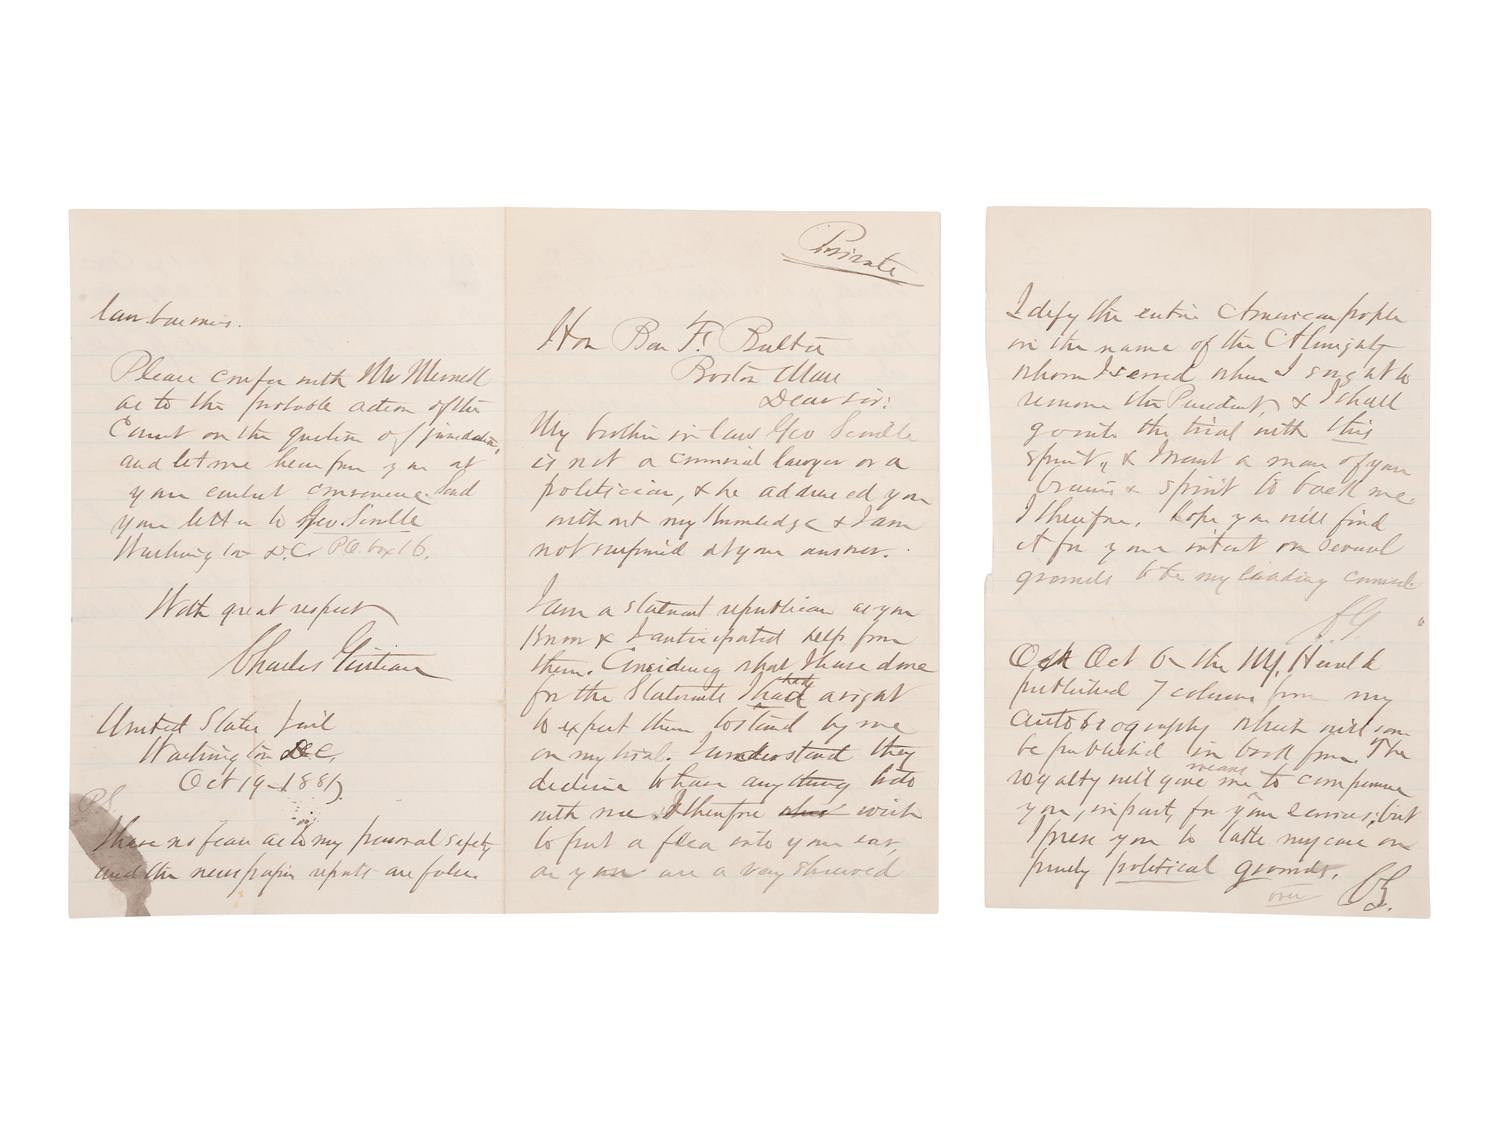 Private
Hon Ben F. Butler
Boston Mass
Dear sir:
My brother in law Geo Scoville
is not a criminal lawyer or a
politician, & he addressed you
without my knowledge & I am
not surprised at your answer.
I am a stalwart republican as you
know & I anticipated help from
them. Considering what I have done
for the Stalwarts I had a right
to expect them to stand by me
on my trial. I understand they
decline to have anything to do
with me. I therefore wish
to put a flea into your ear,
as you are a very shrewd
lawyer
Please confer with Mr Merrick
as to the probable action of the
Court on the question of jurisdiction,
and let me hear from you at
your earliest convenience. Send
your letter to Geo. Scoville
Washington D.C. P.O. box 16.
With great respect
Charles Guiteau
United States Jail
Washington D.C.
Oct 19-1881
P.S.
I have no fear as to my personal safety
and the newspaper reports are false.
I defy the entire American people
in the name of the Almighty
whom I served when I sought to
remove the President, & I shall
go into the trial with this
spirit, & I want a man of your
brains & spirit to back me.
I therefore, hope you will find
it for your interest on several
grounds to be my leading counsel.
C.G.
On Oct 6 the N.Y. Herald
published 7 columns from my
autobiography which will soon
be published in book form. The
royalty will give me means to compensate
you, in part, for your services; but
I press you to take my case on
purely political grounds.
over
C.G.